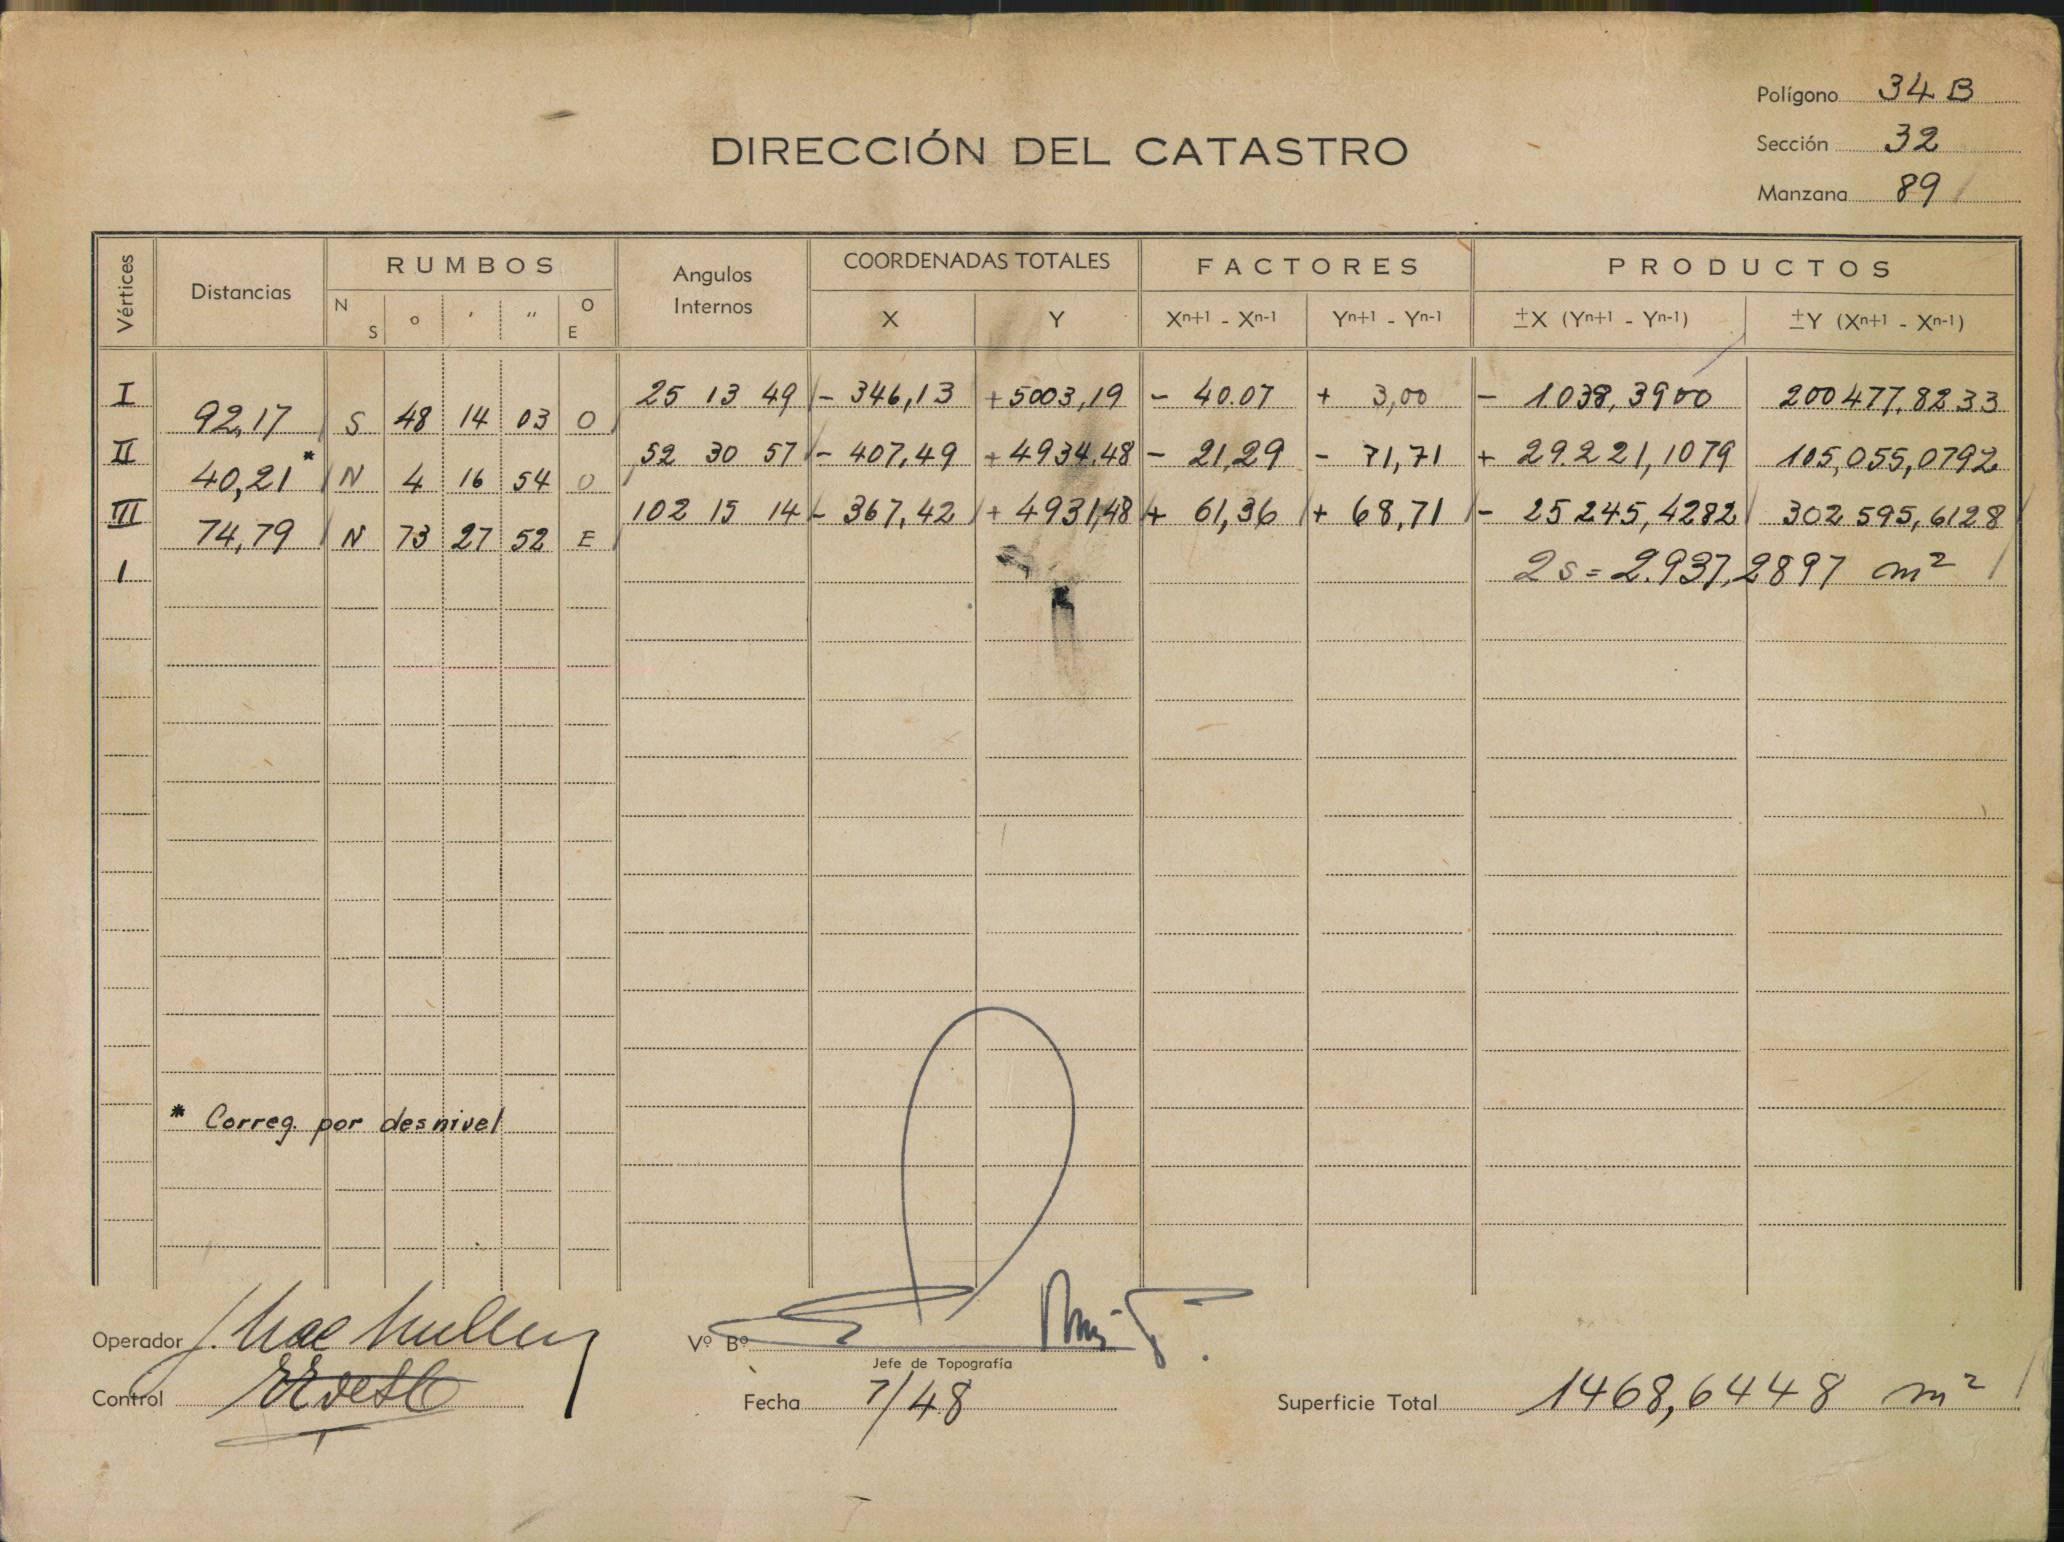 Polígono 34 B
DIRECCIÓN DEL CATASTRO
Sección 32
Manzana 89
Vértices Distancias RUMBOS Angulos Internos COORDENADAS TOTALES FACTORES PRODUCTOS
N S ° ' " O E X Y Xn+1 - Xn-1 Yn+1 - Yn-1 ±X (Yn+1 - Yn-1) ±Y (Xn+1 - Xn-1)
I 25 13 49 - 346,13 +5003,19 - 40.07 + 3,00 - 1.038,3900 200477,8233
92,17 S 48 14 03 O
II 52 30 57 - 407,49 +4934,48 - 21,29 - 71,71 + 29.221,1079 105,055,0792
40,21* N 4 16 54 O
III 102 15 14 - 367,42 + 4931,48 + 61,36 + 68,71 - 25245,4282 302 595,6128
74,79 N 73 27 52 E
I 2s = 2.937,2897 m²
* Correg. por desnivel
Operador J. Mac
Vº Bº
Jefe de Topografía
Control
Fecha 7/48
Superficie Total 1468,6448 m²